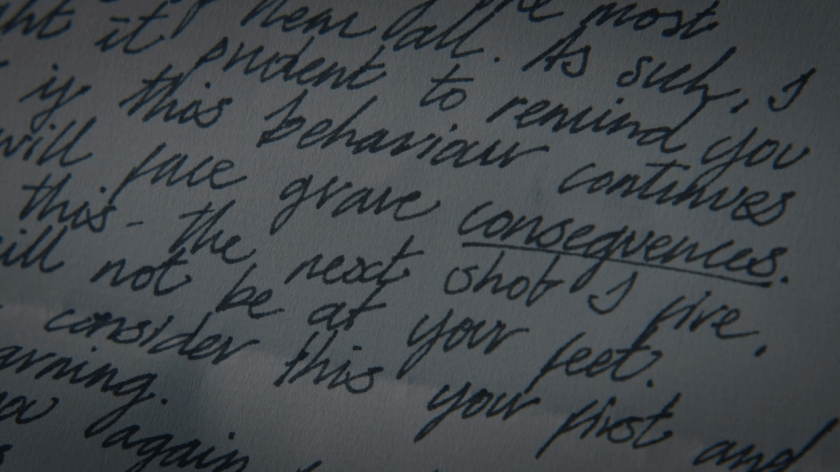 the most
near all. As such, I
ht it prudent to remind you
if this behaviour continues
will face grave consequences.
this - the next shot I fire,
ill not be at your feet.
consider this your first and
arning.
again